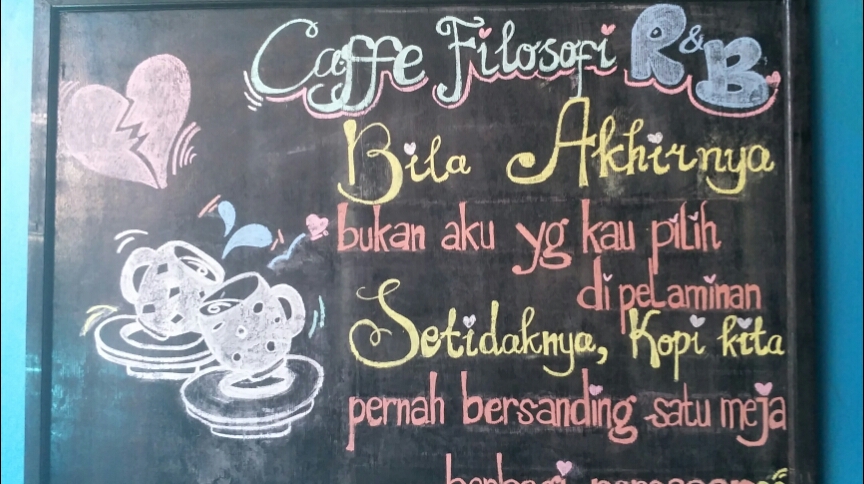 Caffe Filosofi R&B
Bila Akhirnya
bukan aku yg kau pilih
di pelaminan
Setidaknya, Kopi kita
pernah bersanding satu meja
berbagi